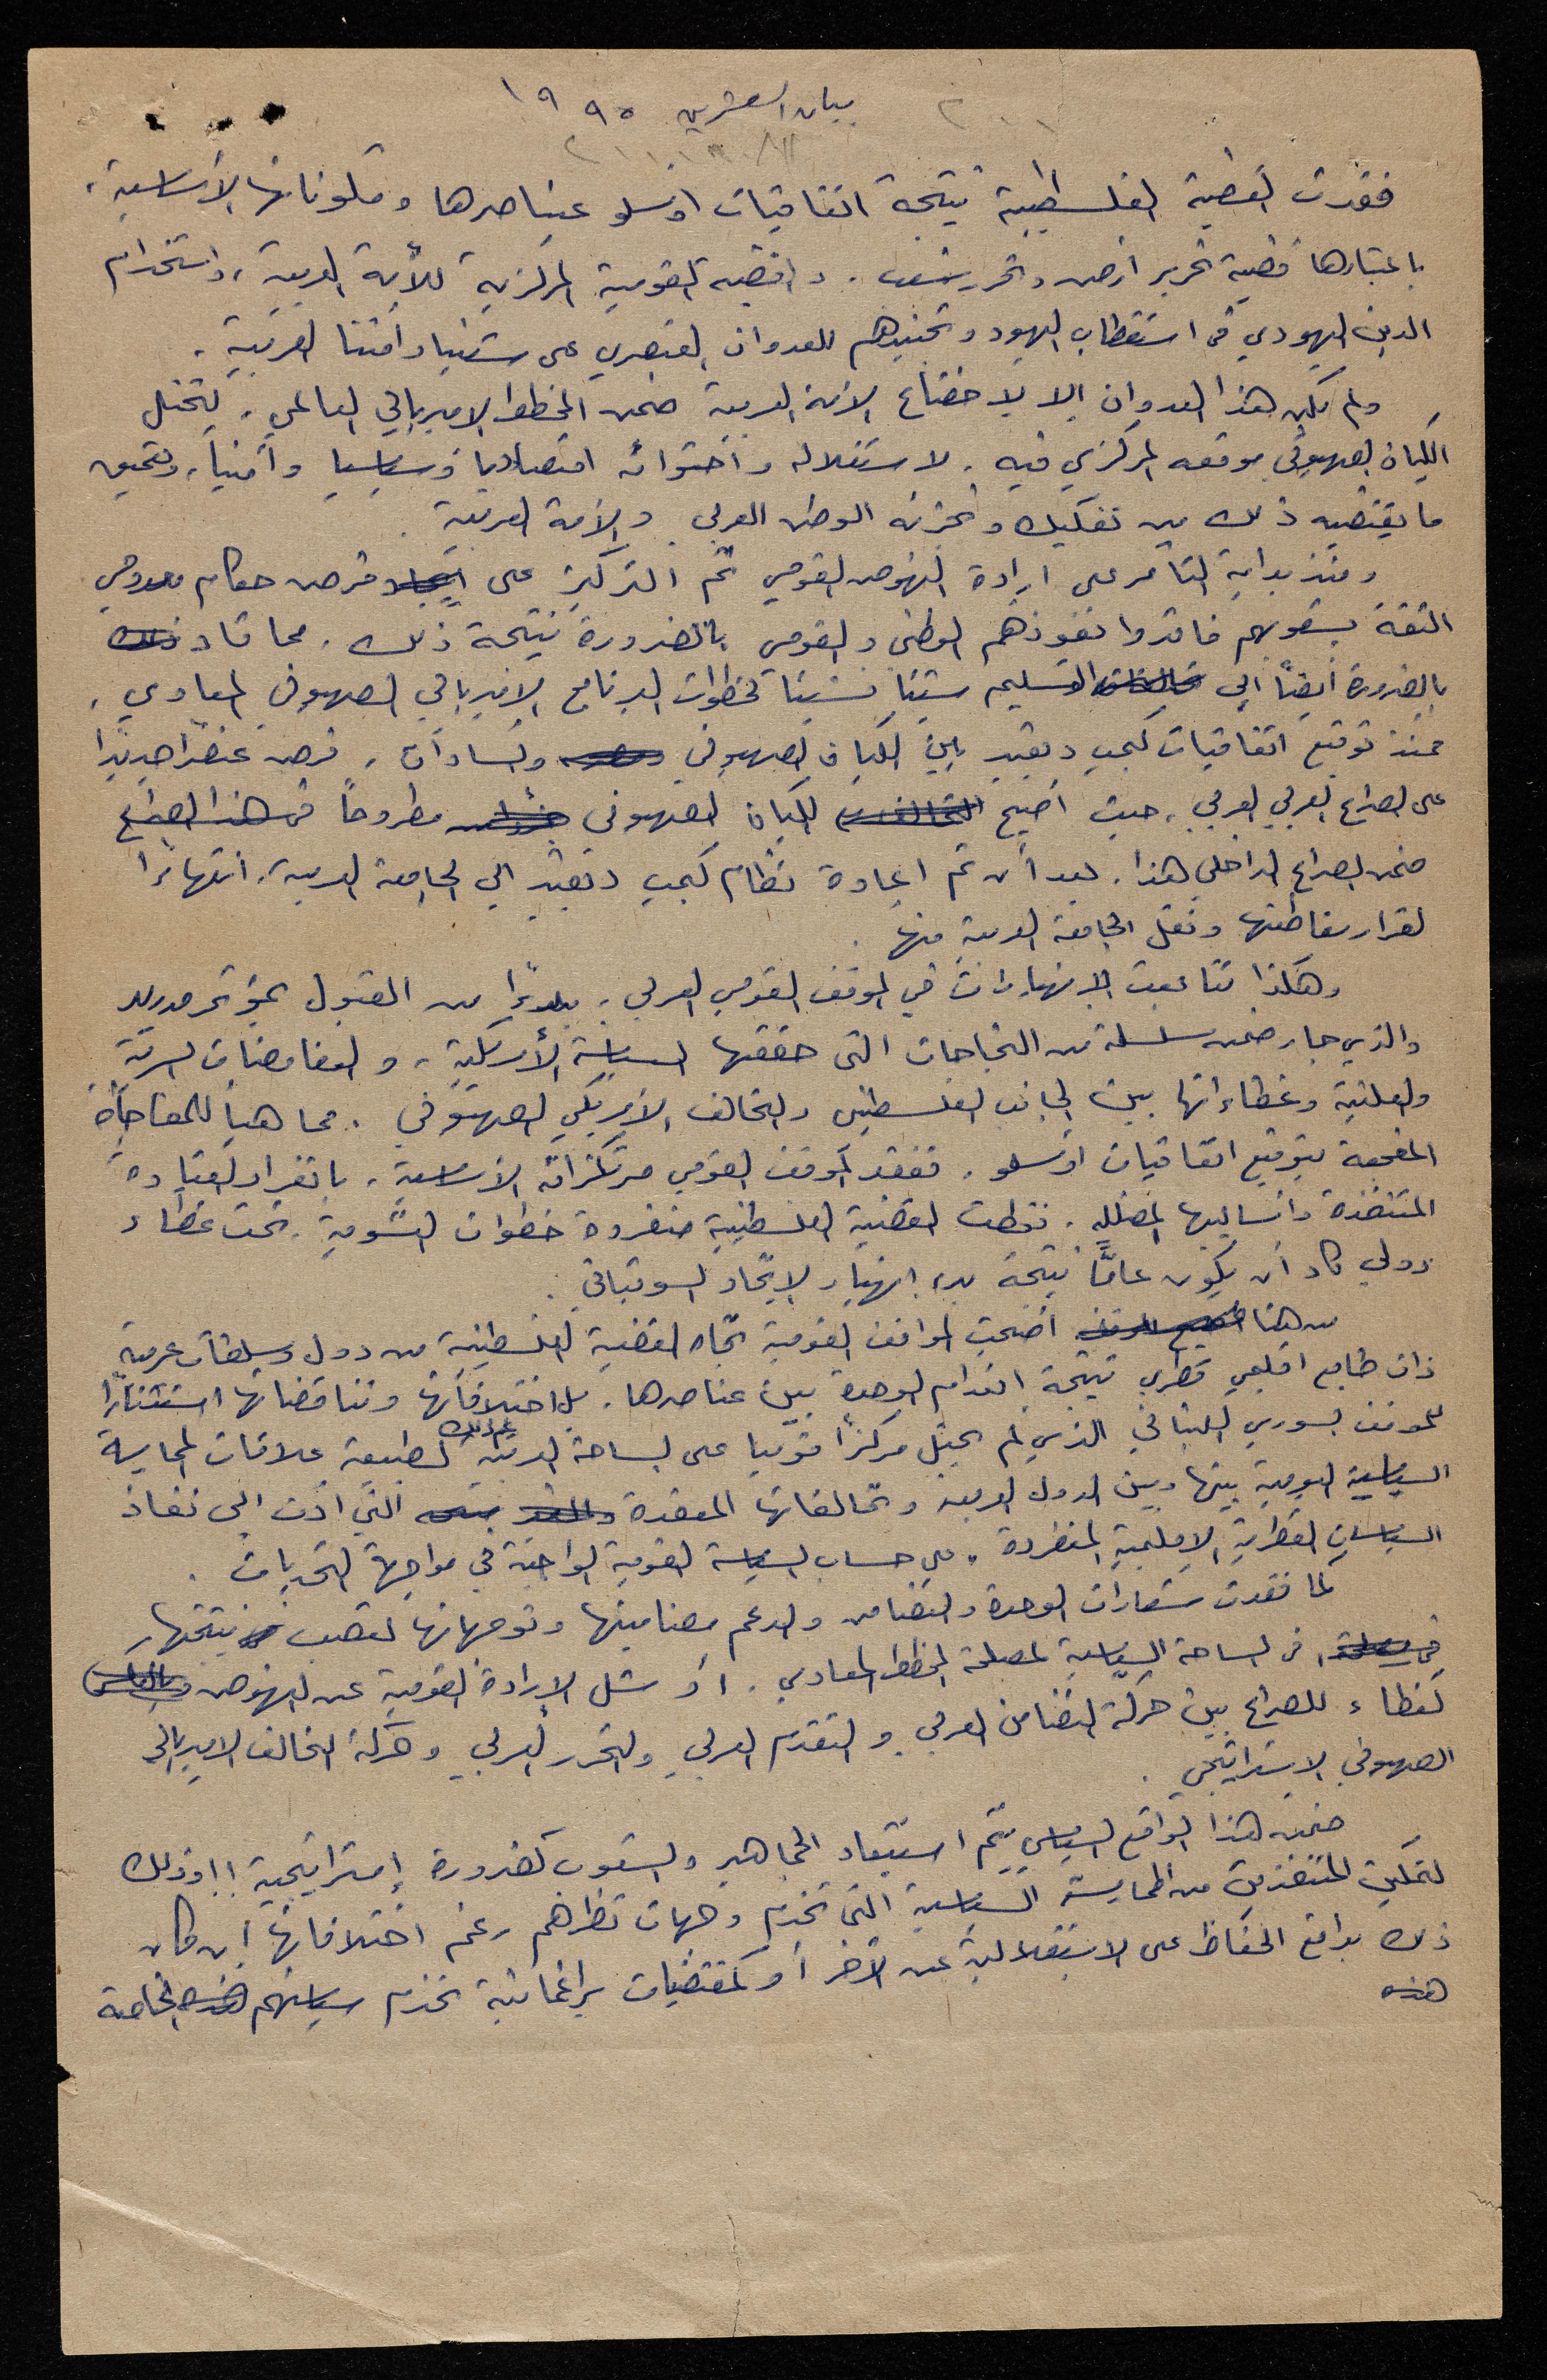 بيان العشرين ١٩٩٥
٢٠٠١
فقدت القضية الفلسطينية نتيجة اتفاقيات اوسلو عناصرها ومكوناتها الأساسية،
باعتبارها قضية تحرير أرض وتحرير شعب. والقضية القومية المركزية للأمة العربية، واستخدام
الدين اليهودي في استقطاب اليهود وتجنيدهم للعدوان العنصري على شعبنا وأمتنا العربية.
ولم يكن هذا العدوان إلا لاخضاع الأمة العربية ضمن المخطط الامبريالي العالمي، ليحتل
الكيان الصهيوني موقعه المركزي فيه. لاستغلاله واحتوائه اقتصاديا وسياسيا وأمنياً، وتحقيق
ما يقتضيه ذلك من تفكيك وتجزئة الوطن العربي والأمة العربية.
ومنذ بداية التآمر على إرادة النهوض القومي تم التركيز على ايجاد فرص حكام معدومي
الثقة بشعوبهم فاقدوا نفوذهم الوطني والقومي بالضرورة نتيجة ذلك. مما قاد ذلك
بالضرورة أيضاً الى التسليم شيئا فشيئا لخطوات البرنامج الامبريالي الصهيوني المعادي.
فمنذ توقيع اتفاقيات كمب ديفيد بين الكيان الصهيوني ومصر والسادات، فرض عنصراً جديداً
على الصراع العربي العربي، حيث أصبح التحالف الكيان الصهيوني مطروحاً في هذا الصراع
ضمن الصراع الداخلي هذا. بعد أن تم إعادة نظام كمب ديفيد الى الجامعة العربية، انتهاءً
لقرار مقاطعتها ونقل الجامعة العربية منها.
وهكذا تتابعت الانهيارات في الموقف القومي العربي. بدءًا من القبول بمؤتمر مدريد
والذي جاء ضمن سلسلة من النجاحات التي حققتها السياسة الأمريكية، والمفاوضات السرية
والعلنية وغطاءاتها بين الجانب الفلسطيني والتحالف الأمريكي الصهيوني. مما هيأ للمفاجأة
المفجعة بتوقيع اتفاقيات اوسلو. ففقد الموقف القومي مرتكزاته الأساسية، بانفراد القيادة
المتنفذة وأساليبها المضللة. فخطت القضية الفلسطينية منفردة خطوات التسوية. تحت غطاء
دولي كاد أن يكون عامًّا نتيجة بدء انهيار الاتحاد السوفياتي.
من هنا أصبح الموقف أضحت المواقف القومية تجاه القضية الفلسطينية من دول وسلطات عربية
ذات طابع اقليمي قطري نتيجة انعدام الوحدة بين عناصرها. بل اختلافاتها وتناقضاتها استثناءًا
للموقف السوري اللبناني الذي لم يحتل مركزاً قوميا على الساحة العربية لطبيعة علاقات الممارسة
السياسية اليومية بينها وبين الدول العربية وتحالفاتها المعقدة التي أدت الى نفاذ
السياسات القطرية الاقليمية المنفردة، على حساب السياسة القومية الواحدة في مواجهة التحديات.
كما فقدت شعارات الوحدة والتضامن والدعم مضامينها وتوجهاتها لتصب نتيجتها
في مصلحة، في الساحة السياسية لمصلحة المخطط المعادي. أو شل الإرادة القومية عن النهوض
كغطاء للصراع بين حركة التضامن العربي والتقدم العربي والتحرر العربي وحركة التحالف الامبريالي
الصهيوني الاستراتيجي.
ضمن هذا الواقع السياسي يتم استبعاد الجماهير والشعوب كضرورة إستراتيجية!! وذلك
لتمكين المتنفذين من الممارسة السياسية التي تخدم وجهات نظرهم رغم اختلافاتها إن كان
ذلك بدافع الحفاظ على الاستقلالية عن الآخر أو كمقتضيات براغماتية تخدم سياستهم هذه الخاصة
هذه